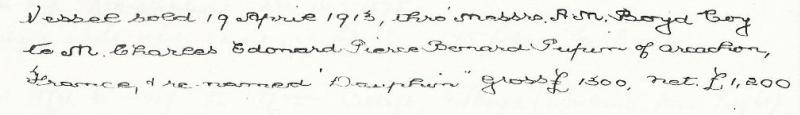 Vessel sold 19 April 1913, thro' Messrs. A.M. Boyd Coy
to M. Charles Edouard Pierce Bernard Pupin of Arcachon,
France, & re-named "Dauphin" gross £ 1300, net. £1,200